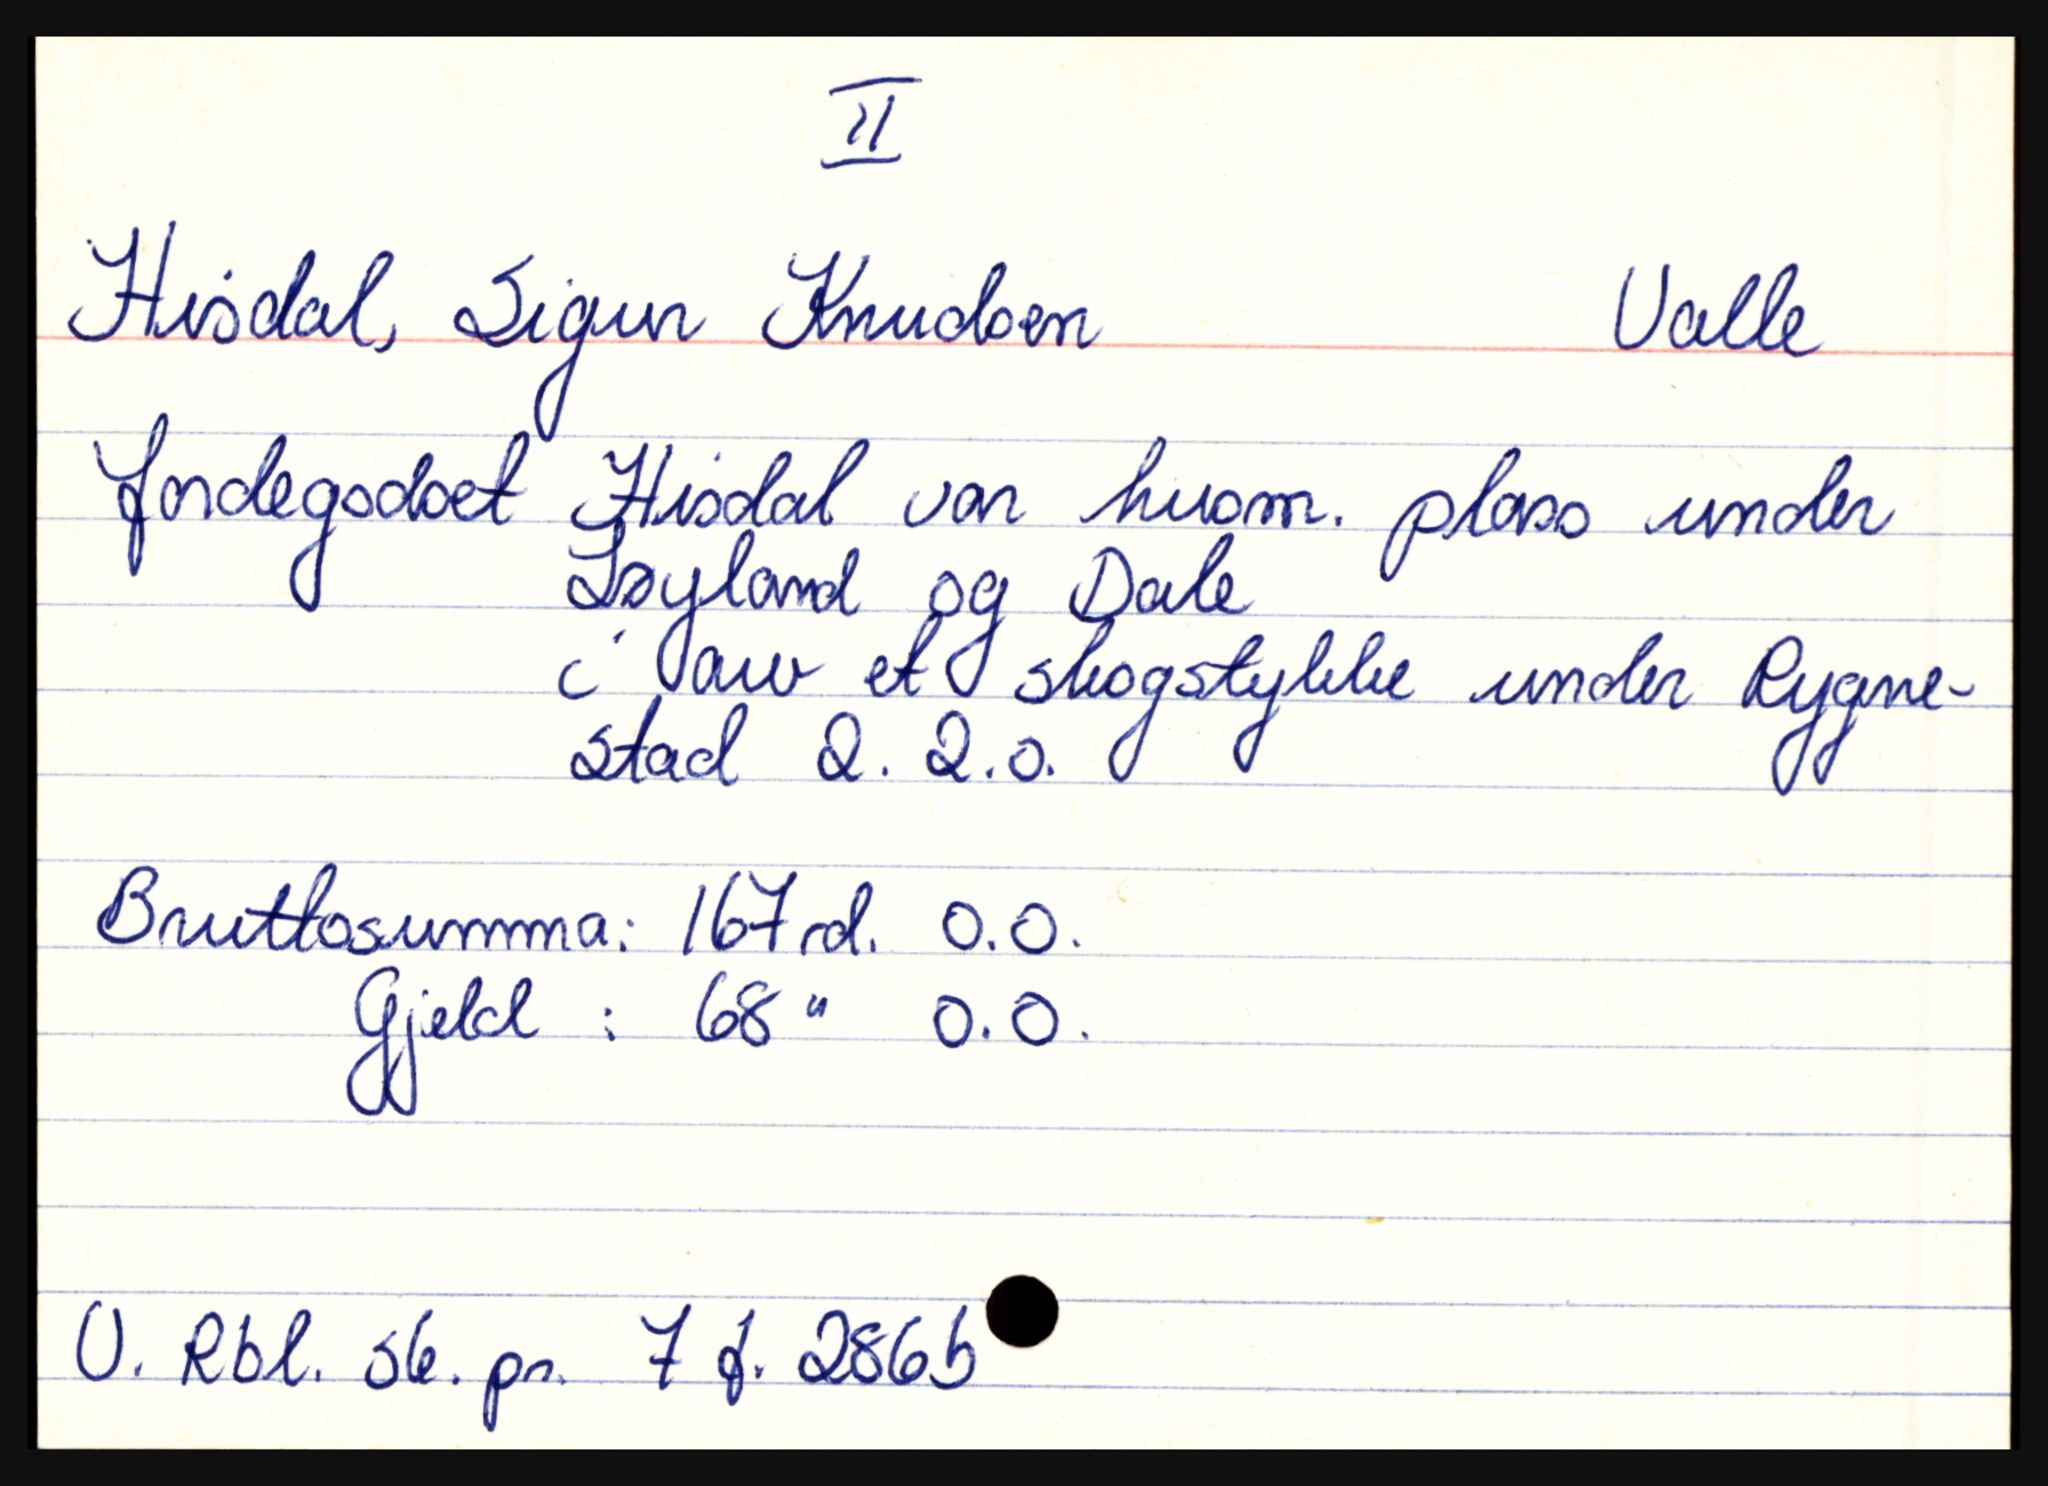 II
Hisdal, Sigur Knudsen Valle
Jordegodset Hisdal var husm. plass under
Løyland og Dale
i arv et skogstykke under Rygne-
stad 2. 2.0.
Bruttosumma: 167 rd. 0.0.
Gjeld : 68 " 0.0.
V. Rbl. sk. pr. 7 f. 286b